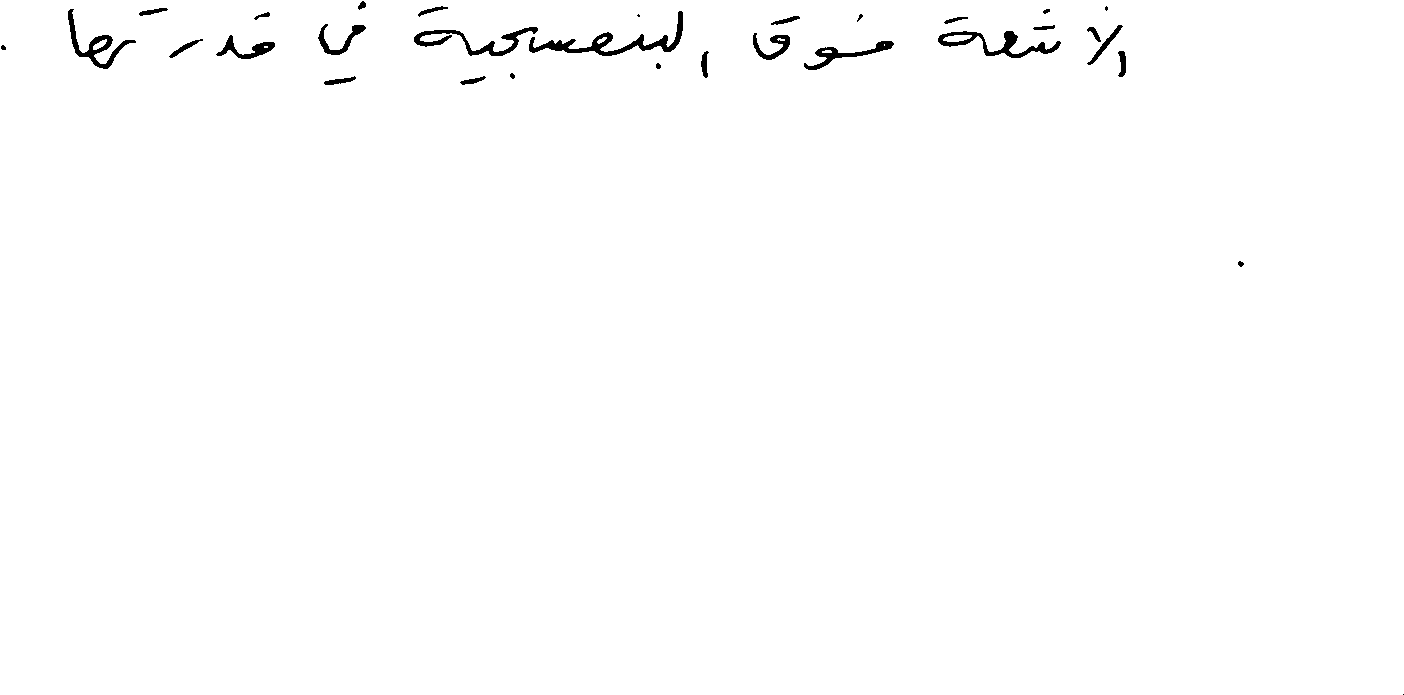 الأشعة فوق البنفسجية في قدرتها